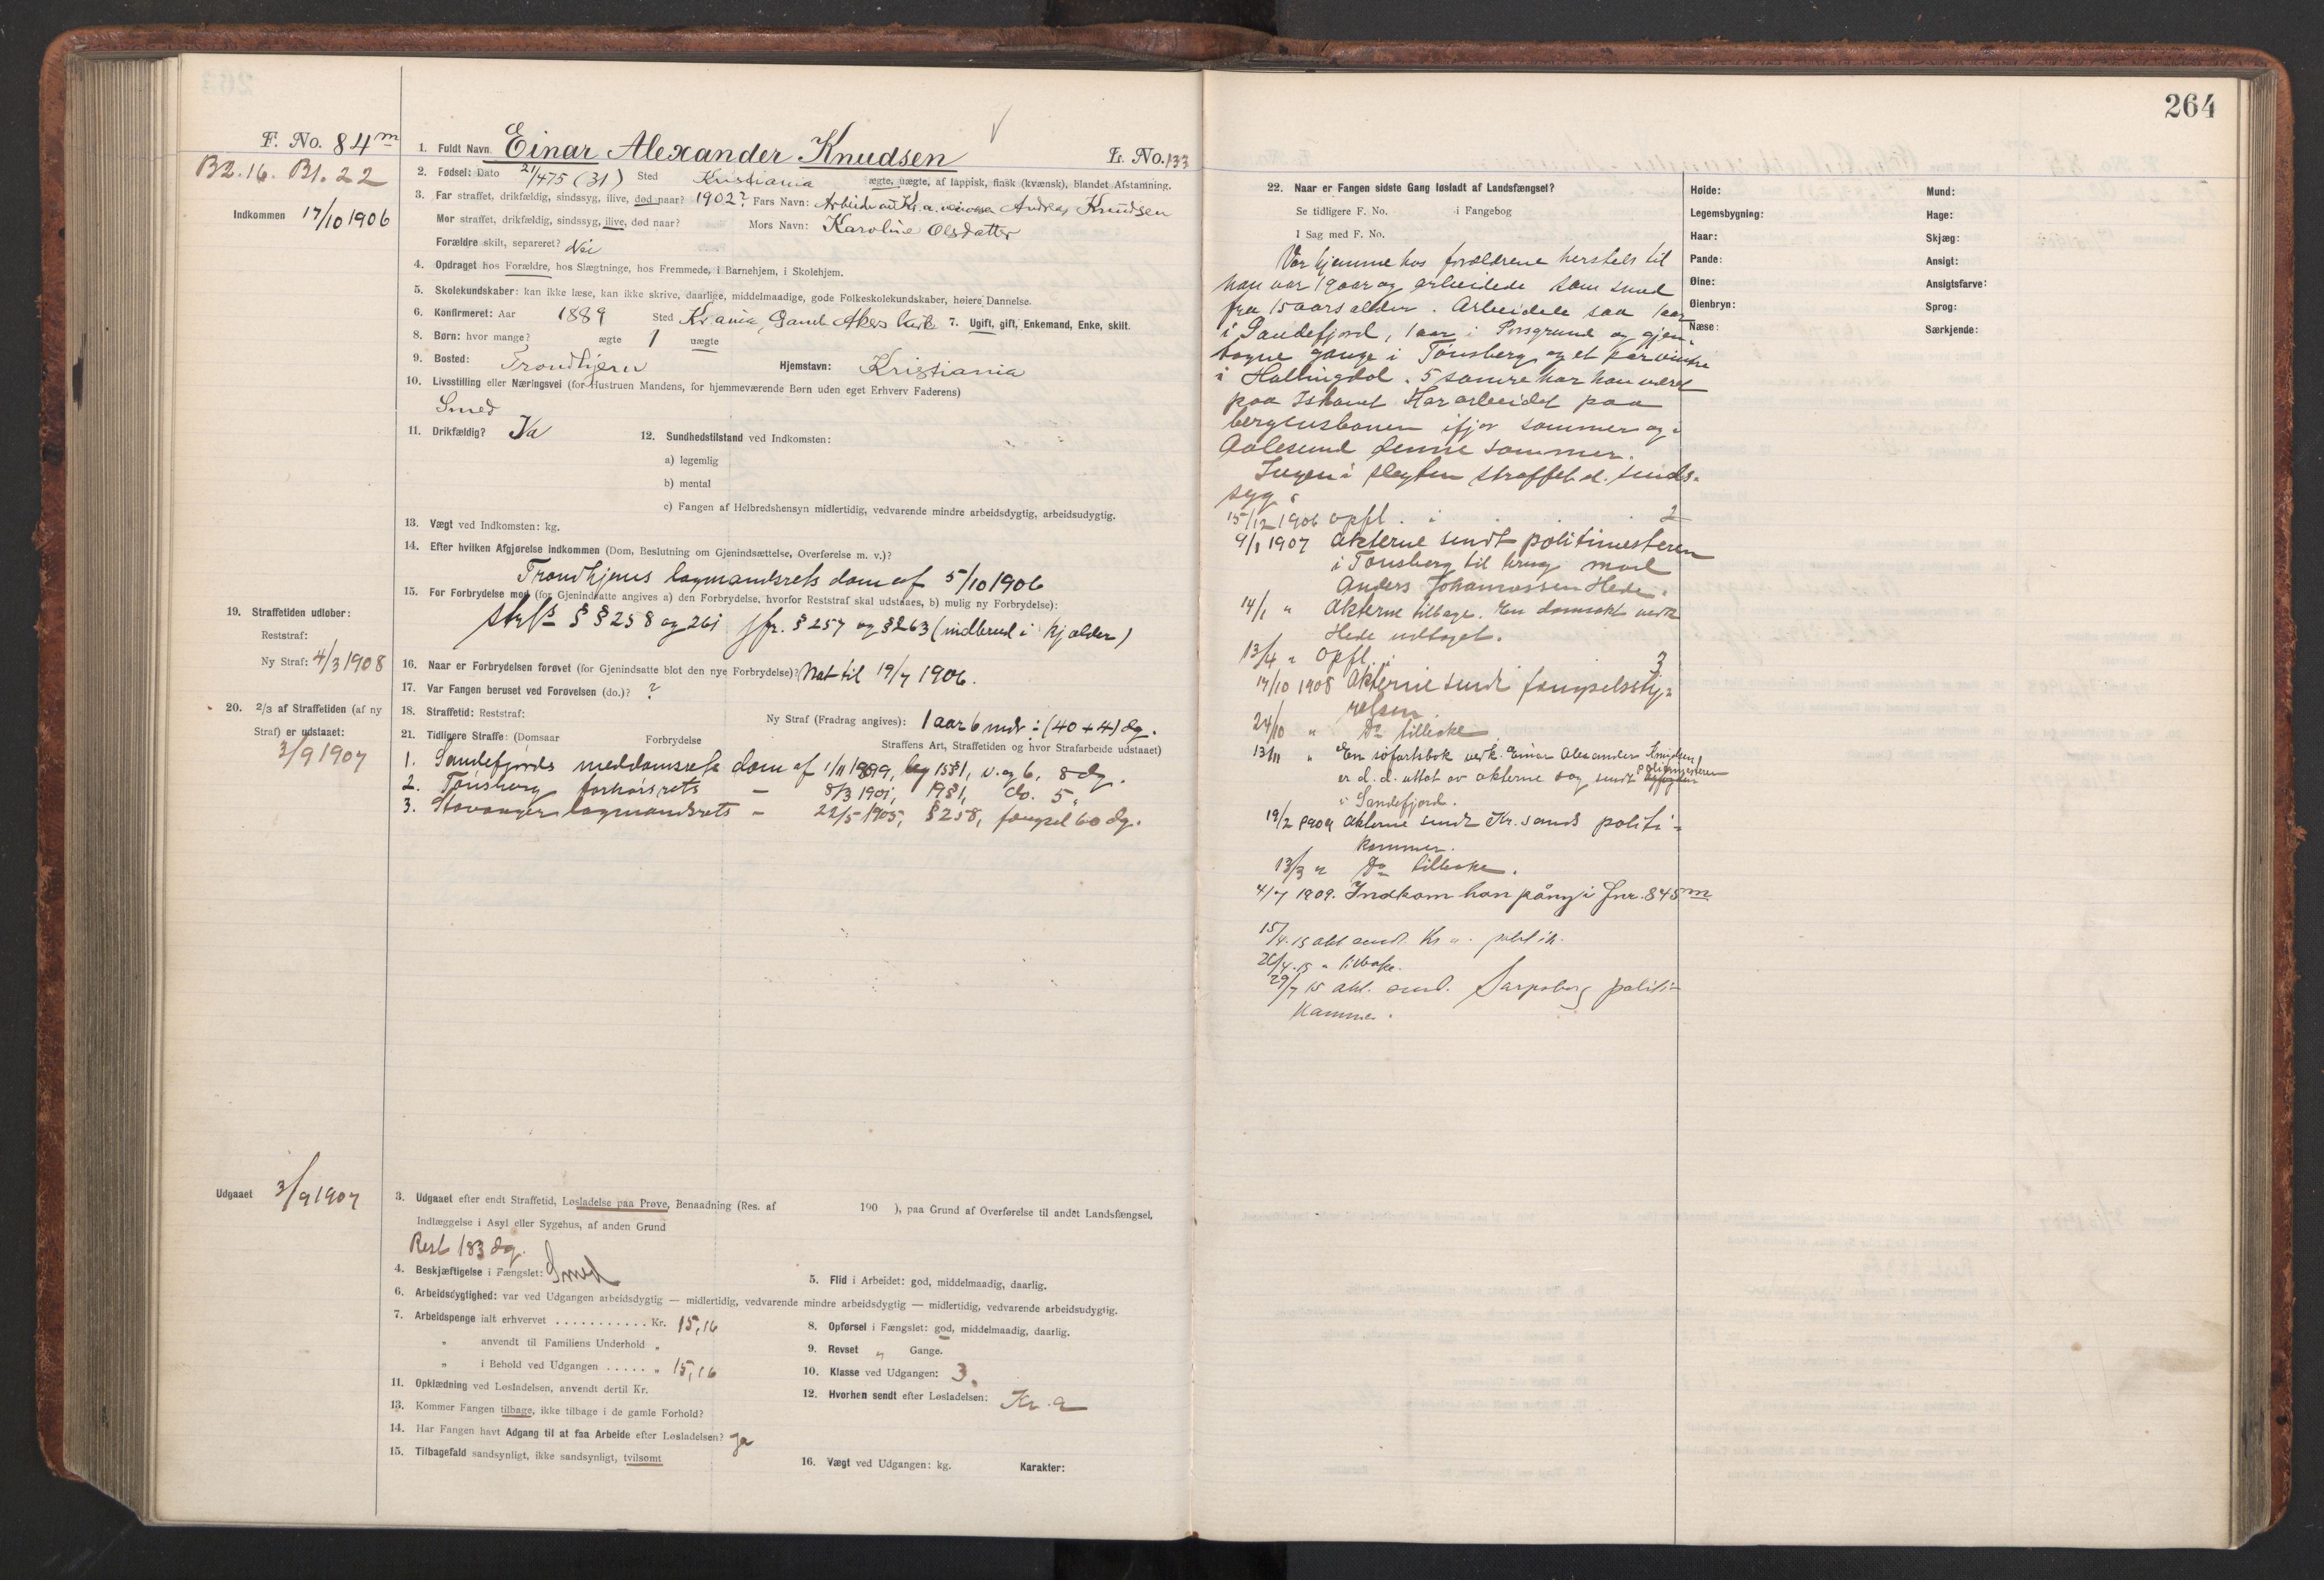 264
F. No. 84m
B2. 16. Bl. 22
Indkommen 17/10 1906
1. Fuldt Navn Einar Alexander Knudsen L. No. 133
2. Fødsel: Dato 21/475 (31) Sted Kristiania ægte, uægte, af lappisk, finsk (kvænsk), blandet Afstamning.
3. Far straffet, drikfældig, sindssyg, ilive, død naar? 1902? Fars Navn: Andreas Knudsen
Mor straffet, drikfældig, sindssyg, ilive, død naar? Mors Navn: Karoline Olsdatter
Forældre skilt, separeret? Nei
4. Opdraget hos Forældre, hos Slægtninge, hos Fremmede, i Barnehjem, i Skolehjem.
5. Skolekundskaber: kan ikke læse, kan ikke skrive, daarlige, middelmaadige, gode Folkeskolekundskaber, høiere Dannelse.
6. Konfirmeret: Aar 1889 Sted Kr.ania, Gamle Akers kirke 7. Ugift, gift, Enkemand, Enke, skilt.
8. Børn: hvor mange? ægte 1 uægte
9. Bosted: Trondhjem Hjemstavn: Kristiania
10. Livsstilling eller Næringsvei (for Hustruen Mandens, for hjemmeværende Børn uden eget Erhverv Faderens)
Smed
11. Drikfældig? Ja 12. Sundhedstilstand ved Indkomsten:
a) legemlig
b) mental
c) Fangen af Helbredshensyn midlertidig, vedvarende mindre arbeidsdygtig, arbeidsudygtig.
13. Vægt ved Indkomsten: kg.
14. Efter hvilken Afgjørelse indkommen (Dom, Beslutning om Gjenindsættelse, Overførelse m. v.)?
Trondhjems lagmandsrets dom af 5/10 1906
15. For Forbrydelse mod (for Gjenindsatte angives a) den Forbrydelse, hvorfor Reststraf skal udstaaes, b) mulig ny Forbrydelse):
§§ 258 og 261 jfr. § 257 og § 263 (indbrud i kjælder)
19. Straffetiden udløber:
Reststraf:
Ny Straf: 4/3 1908
16. Naar er Forbrydelsen forøvet (for Gjenindsatte blot den nye Forbrydelse)? Nat til 19/7 1906.
17. Var Fangen beruset ved Forøvelsen (do.)? ?
20. 2/3 af Straffetiden (af ny
Straf) er udstaaet:
3/9 1907
18. Straffetid: Reststraf: Ny Straf (Fradrag angives): 1 aar 6 mdr ÷ (40 + 4) dg.
21. Tidligere Straffe: (Domsaar Forbrydelse Straffens Art, Straffetiden og hvor Strafarbeide udstaaet)
1. Sandefjords meddomsrets dom af 1/11 1899, 8 dg.
2. Tønsberg forhørsrets — 8/3 1901, 19 § 1, do. 5 "
3. Stavanger lagmandsrets — 22/5 1905, § 258, fængsel 60 dg.
Udgaaet 3/9 1907
3. Udgaaet efter endt Straffetid, Løsladelse paa Prøve, Benaadning (Res. af 190 ), paa Grund af Overførelse til andet Landsfængsel,
Indlæggelse i Asyl eller Sygehus, af anden Grund
Rest 183 dg.
4. Beskjæftigelse i Fængslet: Smed 5. Flid i Arbeidet: god, middelmaadig, daarlig.
6. Arbeidsdygtighed: var ved Udgangen arbeidsdygtig — midlertidig, vedvarende mindre arbeidsdygtig — midlertidig, vedvarende arbeidsudygtig.
7. Arbeidspenge ialt erhvervet . . . . . . . . . . . Kr. 15,16 8. Opførsel i Fængslet: god, middelmaadig, daarlig.
" anvendt til Familiens Underhold " 9. Revset " Gange.
" i Behold ved Udgangen . . . . . " 15,16 10. Klasse ved Udgangen: 3.
11. Opklædning ved Løsladelsen, anvendt dertil Kr. 12. Hvorhen sendt efter Løsladelsen: Kr.a
13. Kommer Fangen tilbage, ikke tilbage i de gamle Forhold?
14. Har Fangen havt Adgang til at faa Arbeide efter Løsladelsen? Ja
15. Tilbagefald sandsynligt, ikke sandsynligt, tvilsomt
16. Vægt ved Udgangen: kg. Karakter:
22. Naar er Fangen sidste Gang løsladt af Landsfængsel?
Se tidligere F. No. i Fangebog
I Sag med F. No.
Var hjemme hos forældrene herstels til
han var 19 aar og arbeidede som smed
fra 15 aars alder. Arbeidede saa 1 aar
i Sandefjord, 1 aar i Porsgrund og gjen-
tagne gange i Tønsberg og et par vintre
i Hallingdal. 5 somre har han været
paa Island. Har arbeidet paa
bergensbanen ifjor sommer og i
Aalesund denne sommer.
Ingen i slegten straffet el. sinds-
syg.
15/12 1906 opfl. i 2
9/1 1907 Akterne sendt politimesteren
i Tønsberg til brug mod
Anders Johannassen Hede.
14/1 " Akterne tilbage. En domsakt vedk.
Hede udtaget.
13/4 " opfl. i 3
17/10 1908 Akterne sendt fængselssty-
relsen.
24/10 " Do tilbake
13/11 " En søfartsbok vedk. Einar Alexander Knudsen
er d. d. uttat av akterne og sendt politimesteren
i Sandefjord.
19/2 1909 Akterne sendt Kr.sands politi-
kammer.
13/3 " Do tilbake.
4/7 1909. Indkom han påny i Fnr. 845m
15/4.15 akt sendt Kr.a. politik.
26/4.15 " tilbake.
29/7 15 akt. send. Sarpsborg politi-
kammer.
Høide: Mund:
Legemsbygning: Hage:
Haar: Skjæg:
Pande: Ansigt:
Øine: Ansigtsfarve:
Øienbryn: Sprog:
Næse: Særkjende: